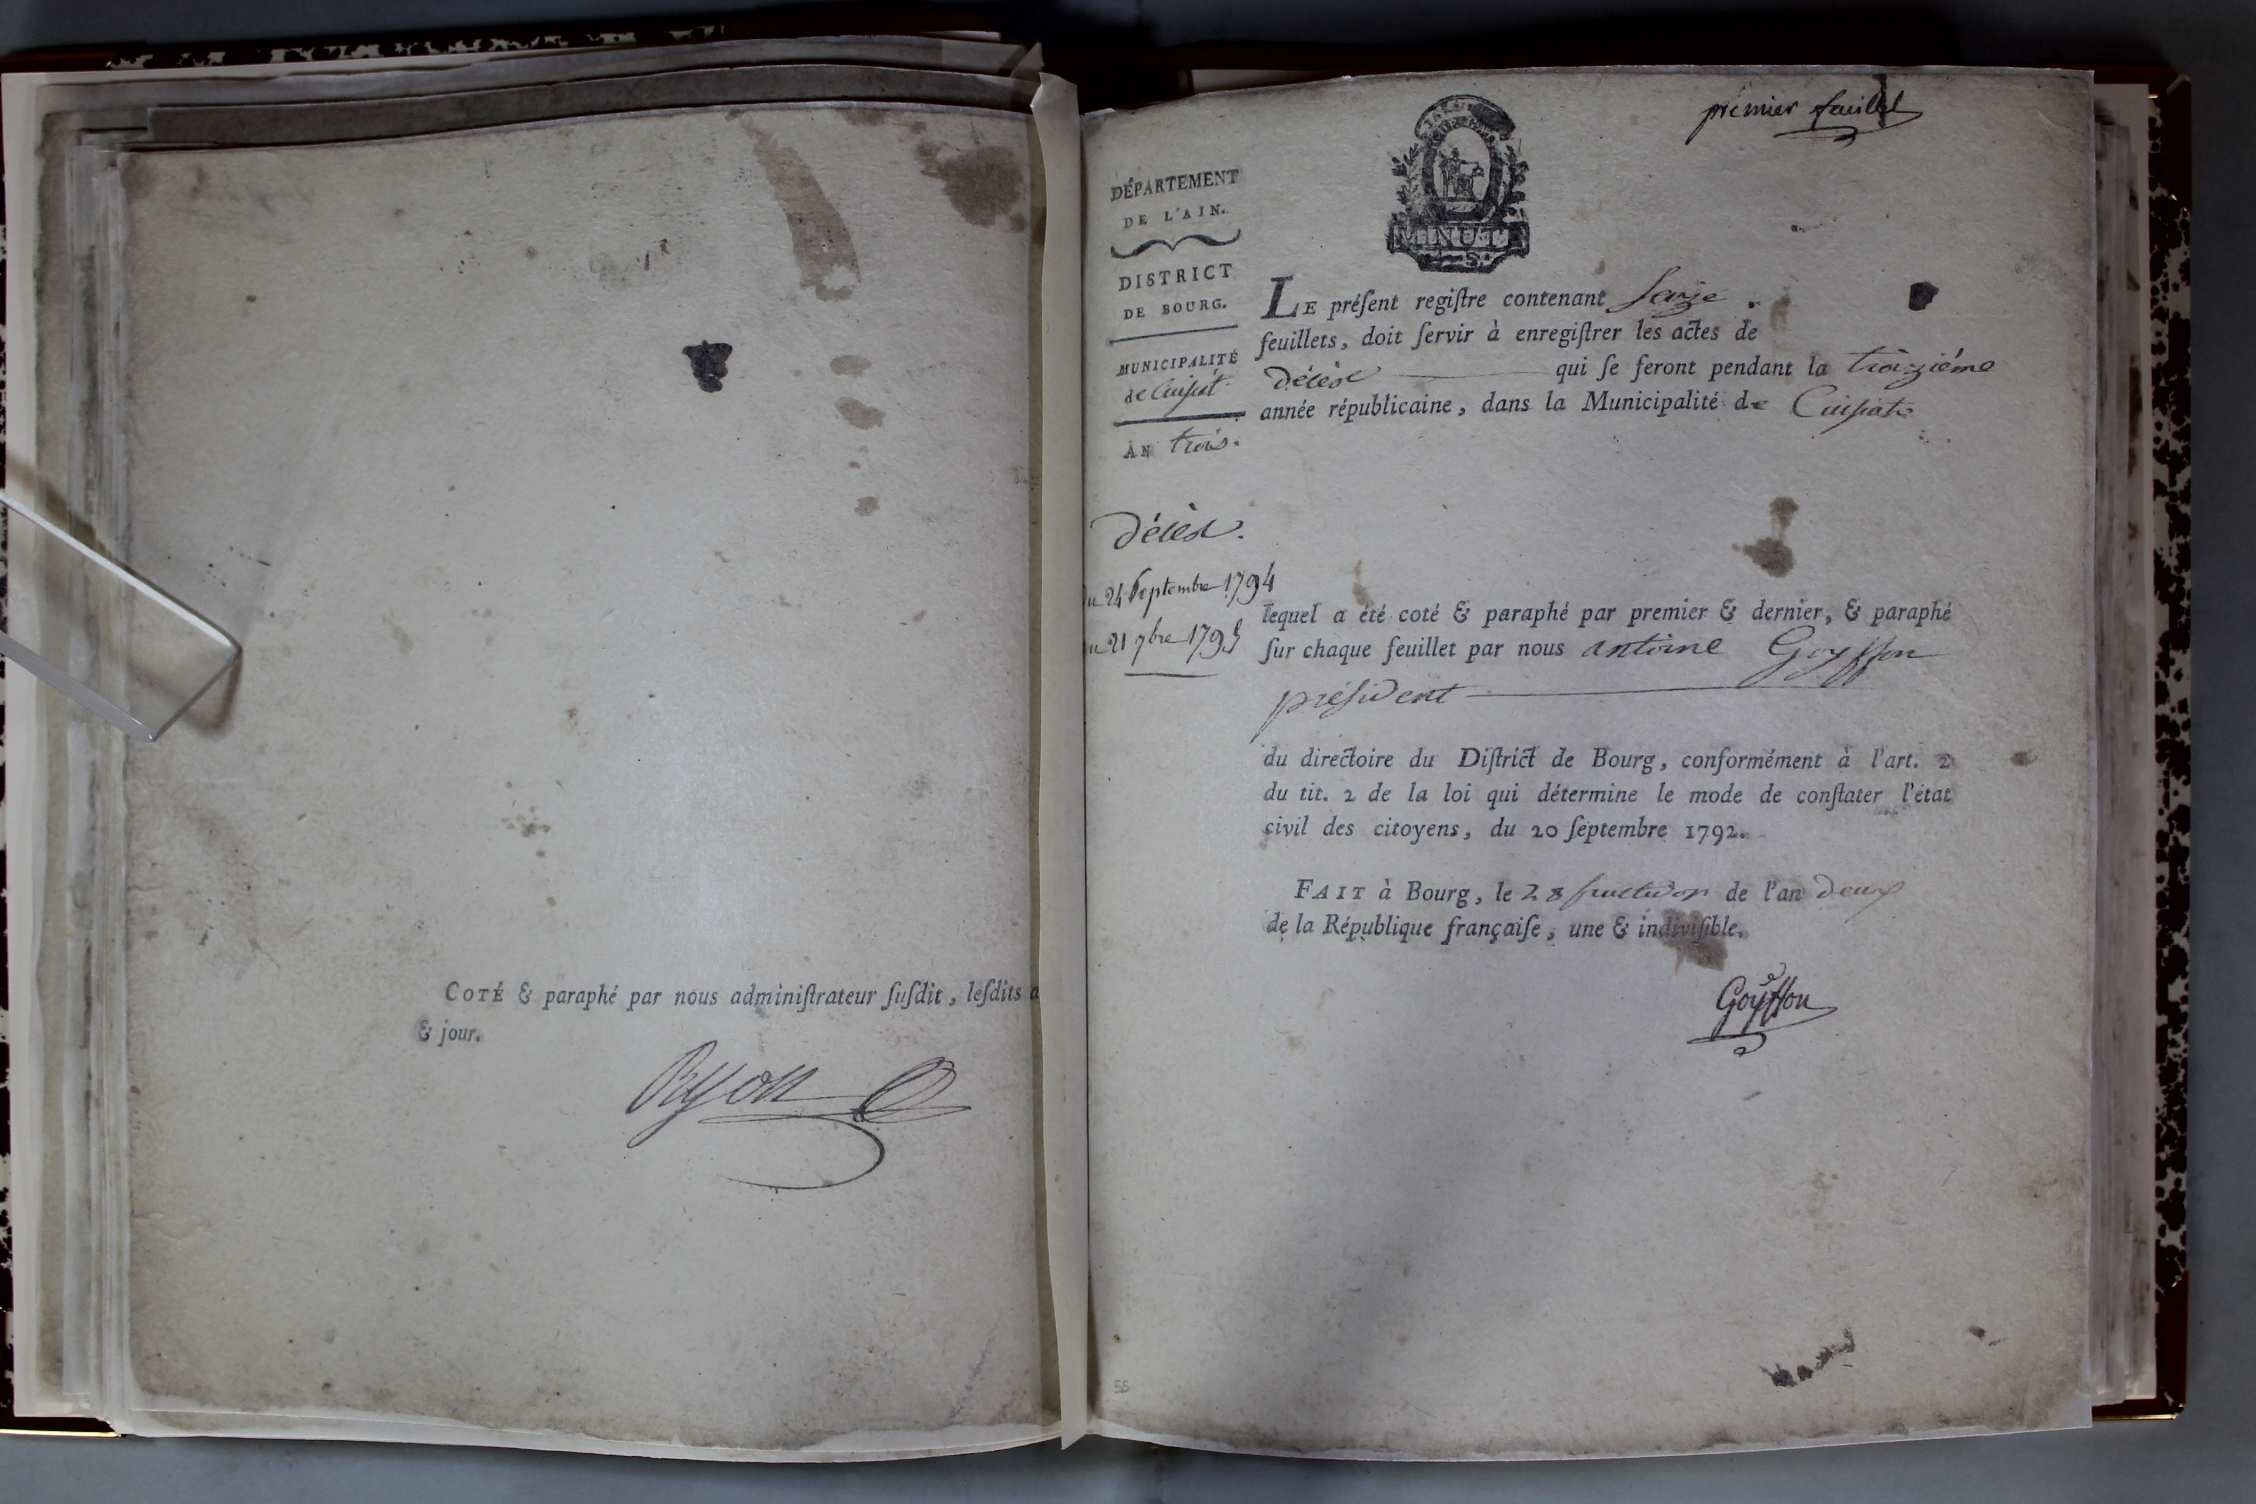 COTÉ & paraphé par nous adminiſtrateur ſuſdit, leſdits a
& jour.
premier feuillet
DÉPARTEMENT
DE L'AIN.
DISTRICT
DE BOURG.
MUNICIPALITÉ
de Cuisiat
AN trois.
Décès.
du 24 Septembre 1794
au 21 7bre 1795
LE préſent regiſtre contenant seize
feuillets, doit ſervir à enregiſtrer les actes de
Décès qui ſe feront pendant la troizième
année républicaine, dans la Municipalité de Cuisiat
lequel a été coté & paraphé par premier & dernier, & paraphé
ſur chaque feuillet par nous antoine Goyffon
préſident
du directoire du Diſtrict de Bourg, conformément à l'art. 2
du tit. 2 de la loi qui détermine le mode de conſtater l'état
civil des citoyens, du 20 ſeptembre 1792.
FAIT à Bourg, le 28 fructidor de l'an deux
de la République françaiſe, une & indiviſible.
Goyffon
55